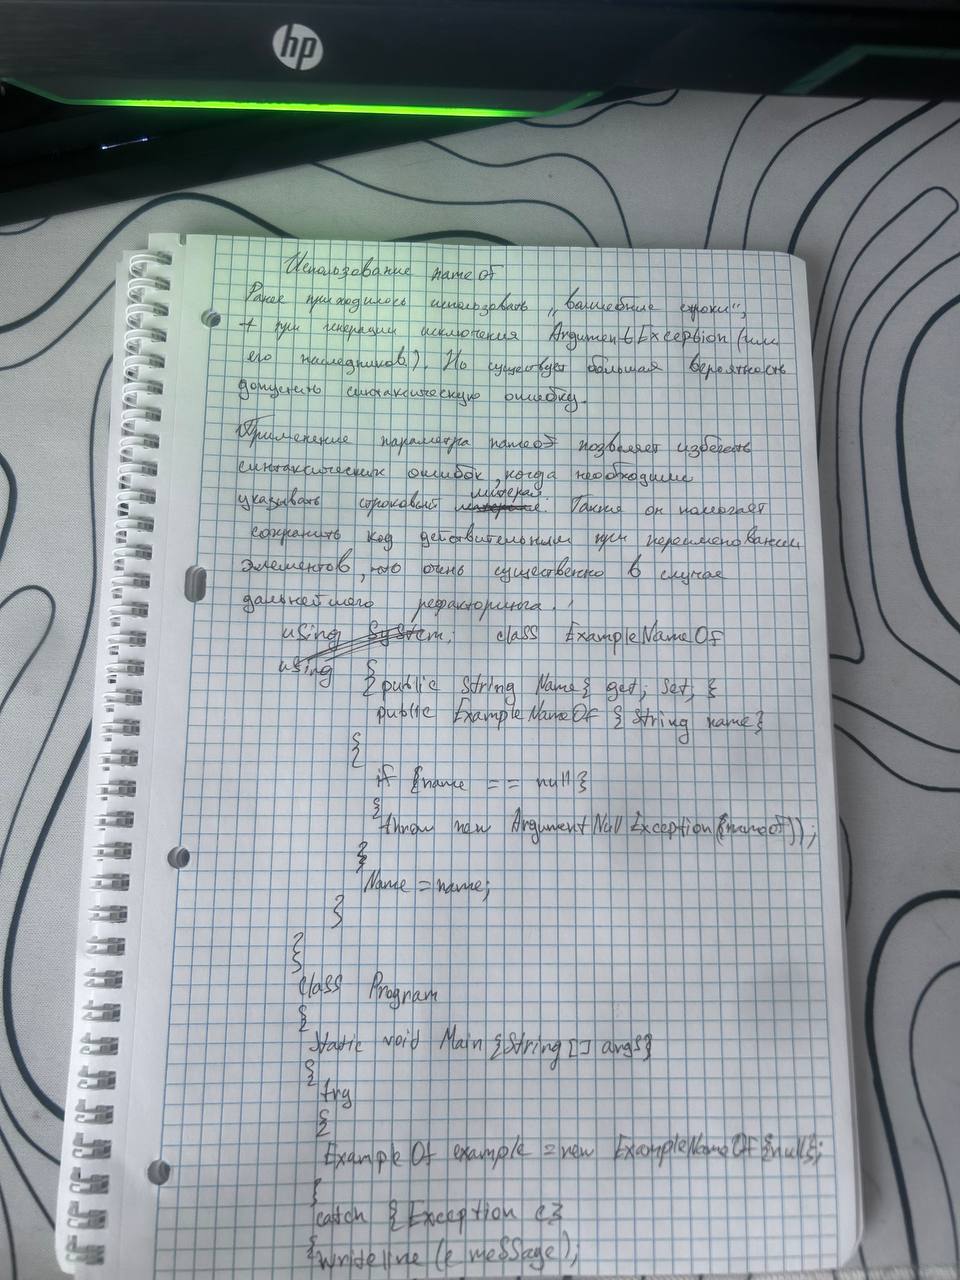 hp
Использование nameof
Ранее приходилось использовать „валшебние строки“,
при генерации исключения ArgumentException (или
его наследников). Но существует большая вероятность
допустить синтаксическую ошибку.
Применение параметра nameof позволяет избегать
синтаксических ошибок, когда необходимо
литерал
указывать строковый. Также он помогает
сохранить код действительным при переименовании
элементов, что очень существенно в случае
дальнейшего рефакторинга.
using System; class ExampleNameOf
using { public String Name{ get; set; }
public ExampleNameOf { String name}
{
if {name == null}
{
throw new ArgumentNullException({nameof});
}
Name = name;
}
}
class Program
{
Static void Main {String [] args}
{
try
{
ExampleOf example = new ExampleNameOf{null};
}
catch {Exception e}
{Writeline (e message);